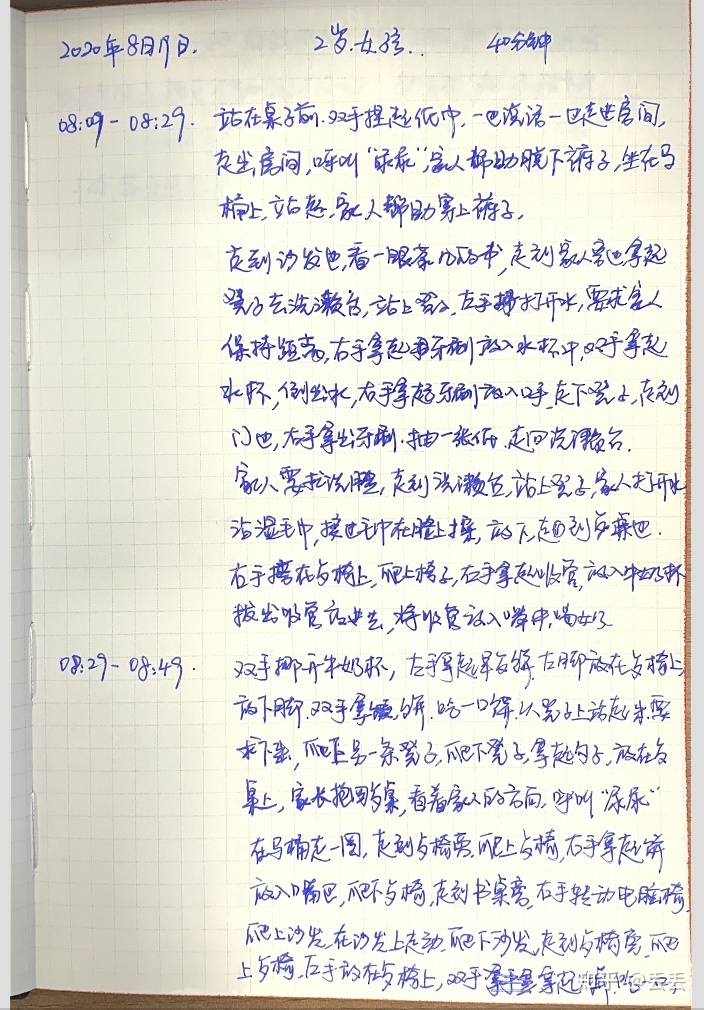 2020年8月19日. 2岁.女孩.. 40分钟
08:09-08:29. 站在桌子前.双手捏起纸巾,一边说话一边走进房间,
走出房间,呼叫“尿尿”,家人帮助脱下裤子,坐在马
桶上,站起,家人帮助穿上裤子.
走到沙发边,看一眼茶几的书,走到家人旁边,拿起
凳子去洗漱台,站上凳子,左手打开水,要求家人
保持距离,右手拿起牙刷放入水杯中,双手拿起
水杯,倒出水,右手拿起牙刷放入口手,走下凳子,走到
门边,右手拿出牙刷.抽一张纸.走回洗漱台.
家人要求洗脸,走到洗漱台,站上凳子,家人打开水
沾湿毛巾,接过毛巾在脸上擦,放下,走回到餐桌边.
右手搭在餐椅上,爬上椅子,右手拿起吸管,放入牛奶杯
拔出吸管,将吸管放入嘴中,喝奶
08:29-08:49. 双手挪开牛奶杯,左手拿起饼,左脚放在餐椅上
放下脚.双手拿饼.吃一口饼.从凳子上站起来.要
求下来,爬上另一条凳子,爬下凳子,拿起勺子,放在餐
桌上,家长抱回餐桌,看着家人的方向,呼叫“尿尿”
在马桶走一圈,走到餐椅旁.爬上餐椅,右手拿起饼
放入嘴巴,爬下餐椅,走到书桌旁,右手转动电脑椅.
爬上沙发,在沙发上走动.爬下沙发,走到餐椅旁,爬
上餐椅.左手放在餐椅上,双手拿起饼.吃一口,
知乎 @丢丢